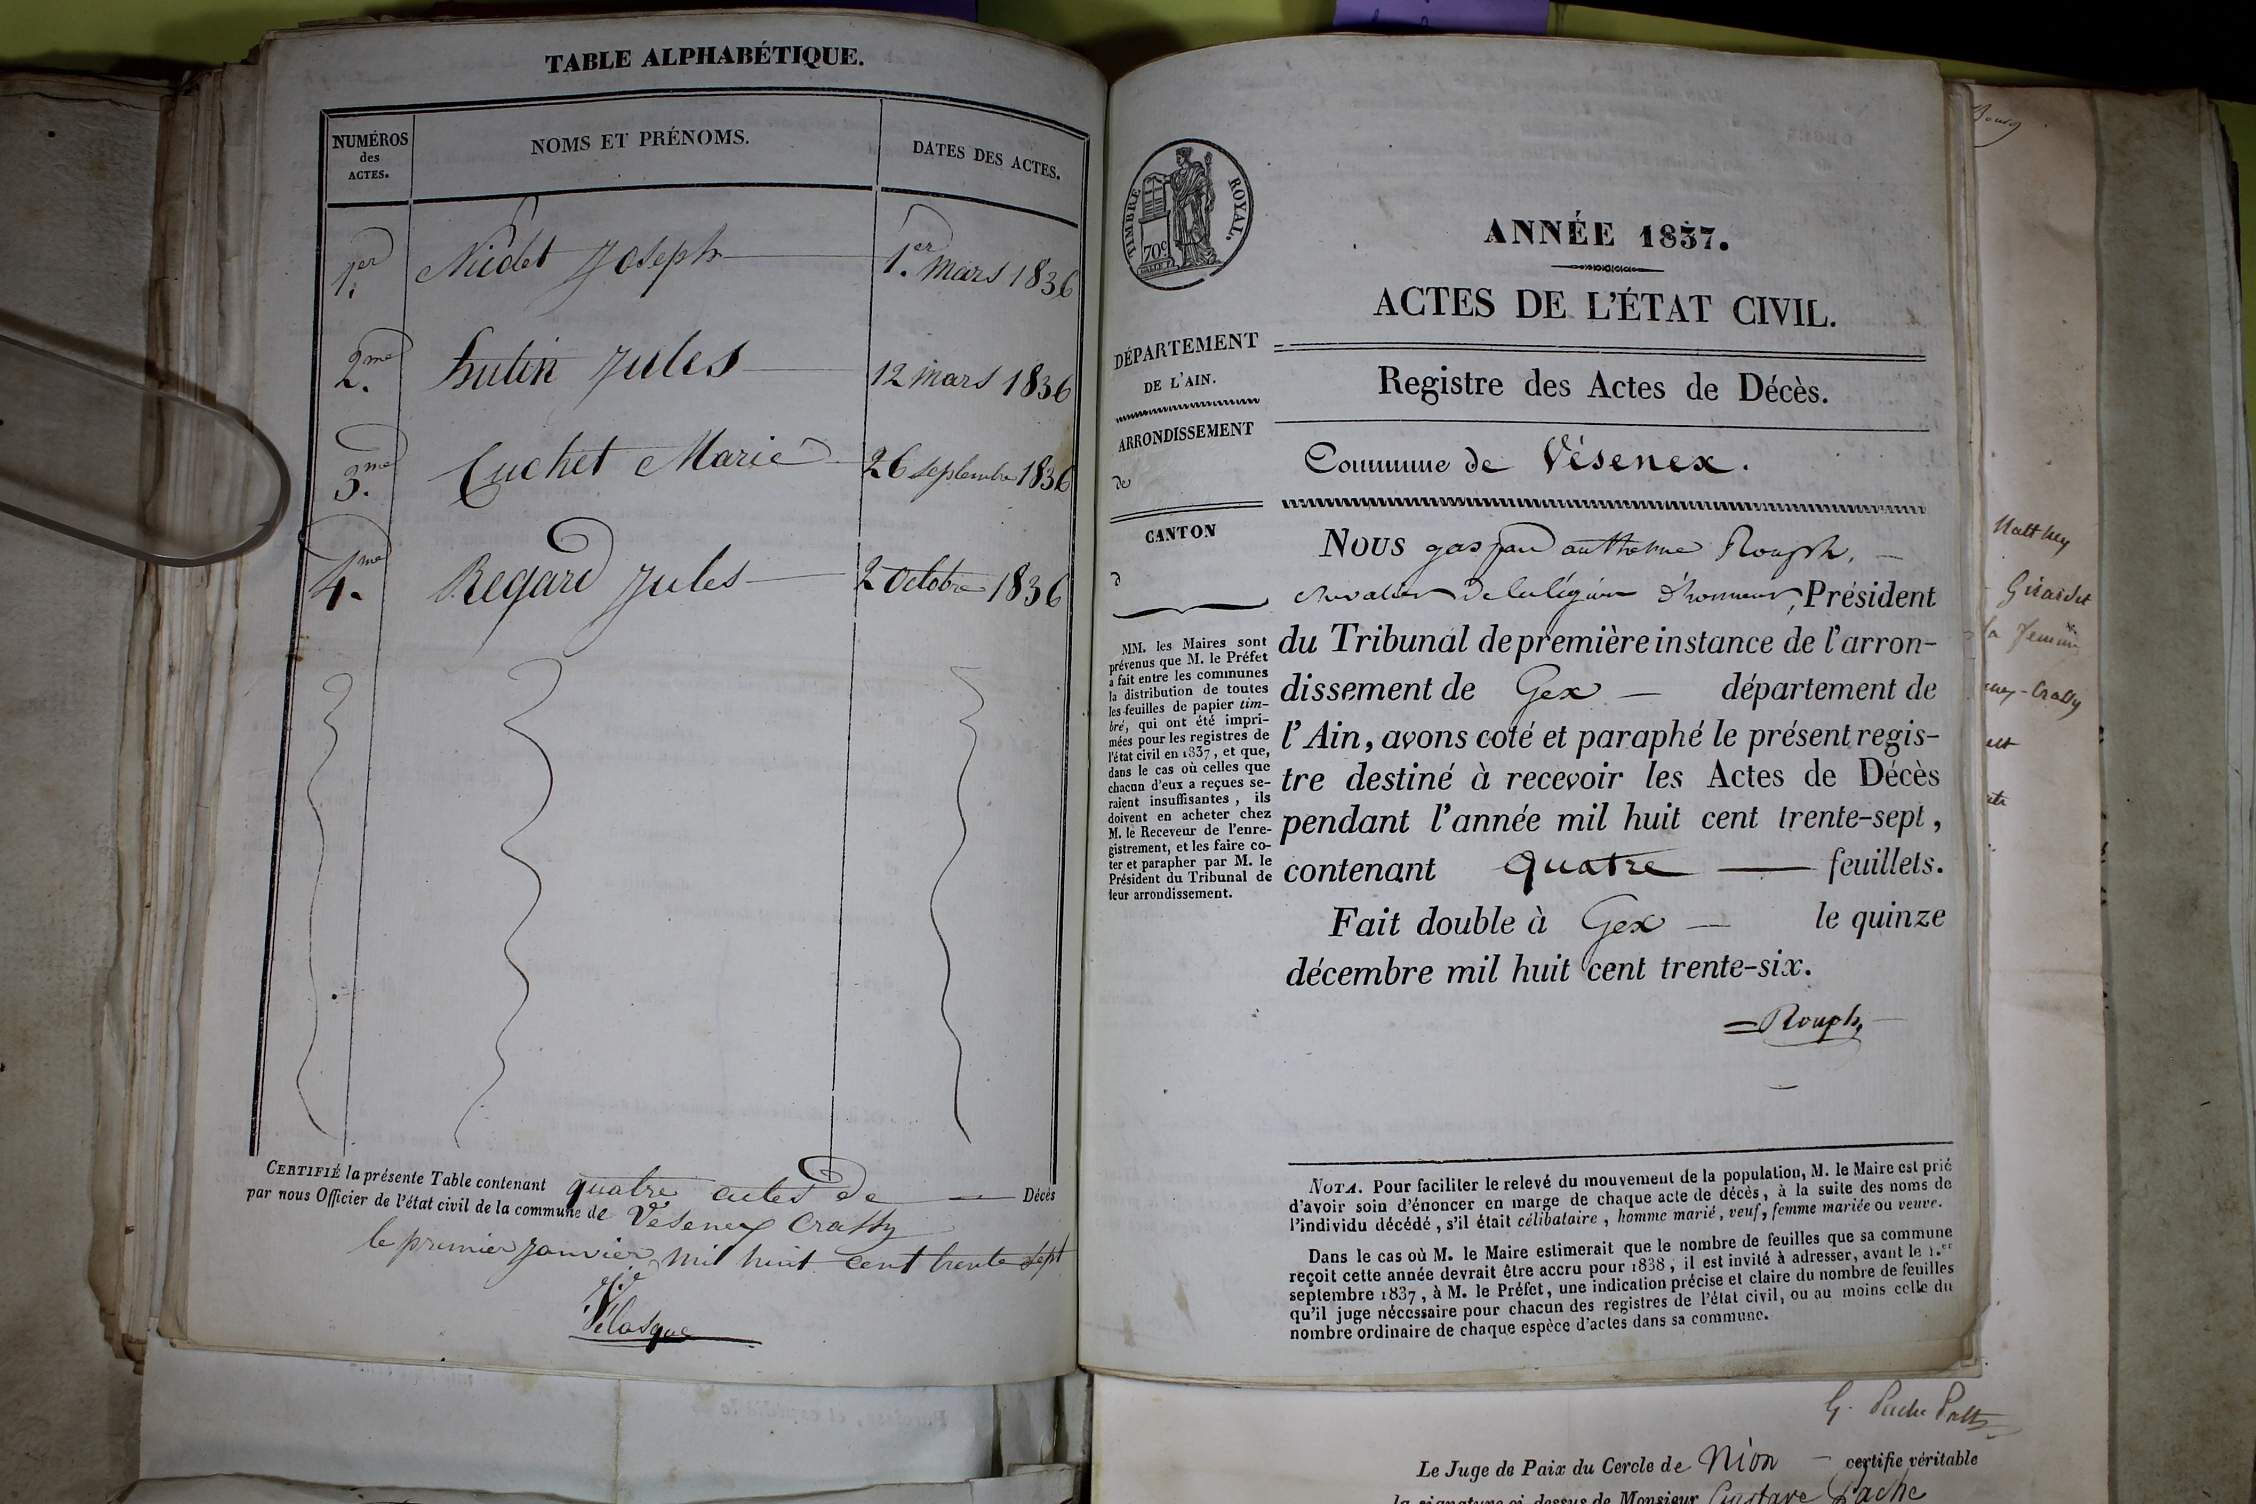 TABLE ALPHABÉTIQUE.
NUMÉROS des ACTES.
NOMS ET PRÉNOMS.
DATES DES ACTES.
1.er Nicdet Joseph 1.er mars 1836
2.me hutin Jules 12 mars 1836
3.me Cuchet Marie 26 septembre 1836
4.me Regard Jules 2 octobre 1836
CERTIFIÉ la présente Table contenant quatre actes de Décès
par nous Officier de l'état civil de la commune de Vésenex Crassy
le premier Janvier mil huit cent trente sept
Velasque
TIMBRE ROYAL.
70c
ANNÉE 1837.
ACTES DE L'ÉTAT CIVIL.
DÉPARTEMENT
DE L'AIN.
ARRONDISSEMENT
de
CANTON
d
MM. les Maires sont
prévenus que M. le Préfet
a fait entre les communes
la distribution de toutes
les feuilles de papier tim-
bré, qui ont été impri-
mées pour les registres de
l'état civil en 1837, et que,
dans le cas où celles que
chacun d'eux a reçues se-
raient insuffisantes, ils
doivent en acheter chez
M. le Receveur de l'enre-
gistrement, et les faire co-
ter et parapher par M. le
Président du Tribunal de
leur arrondissement.
Registre des Actes de Décès.
Commune de Vésenex.
NOUS gaspard anthelme Rouph,
chevalier de la légion d'honneur, Président
du Tribunal de première instance de l'arron-
dissement de Gex département de
l'Ain, avons coté et paraphé le présent regis-
tre destiné à recevoir les Actes de Décès
pendant l'année mil huit cent trente-sept,
contenant quatre feuillets.
Fait double à Gex le quinze
décembre mil huit cent trente-six.
Rouph
NOTA. Pour faciliter le relevé du mouvement de la population, M. le Maire est prié
d'avoir soin d'énoncer en marge de chaque acte de décès, à la suite des noms de
l'individu décédé, s'il était célibataire, homme marié, veuf, femme mariée ou veuve.
Dans le cas où M. le Maire estimerait que le nombre de feuilles que sa commune
reçoit cette année devrait être accru pour 1838, il est invité à adresser, avant le 1.er
septembre 1837, à M. le Préfet, une indication précise et claire du nombre de feuilles
qu'il juge nécessaire pour chacun des registres de l'état civil, ou au moins celle du
nombre ordinaire de chaque espèce d'actes dans sa commune.
Matthey
Girardet
la femme
Crassy
G. Pache
Le Juge de Paix du Cercle de Nion certifie véritable
la signature ci-dessus de Monsieur Gustave Pache